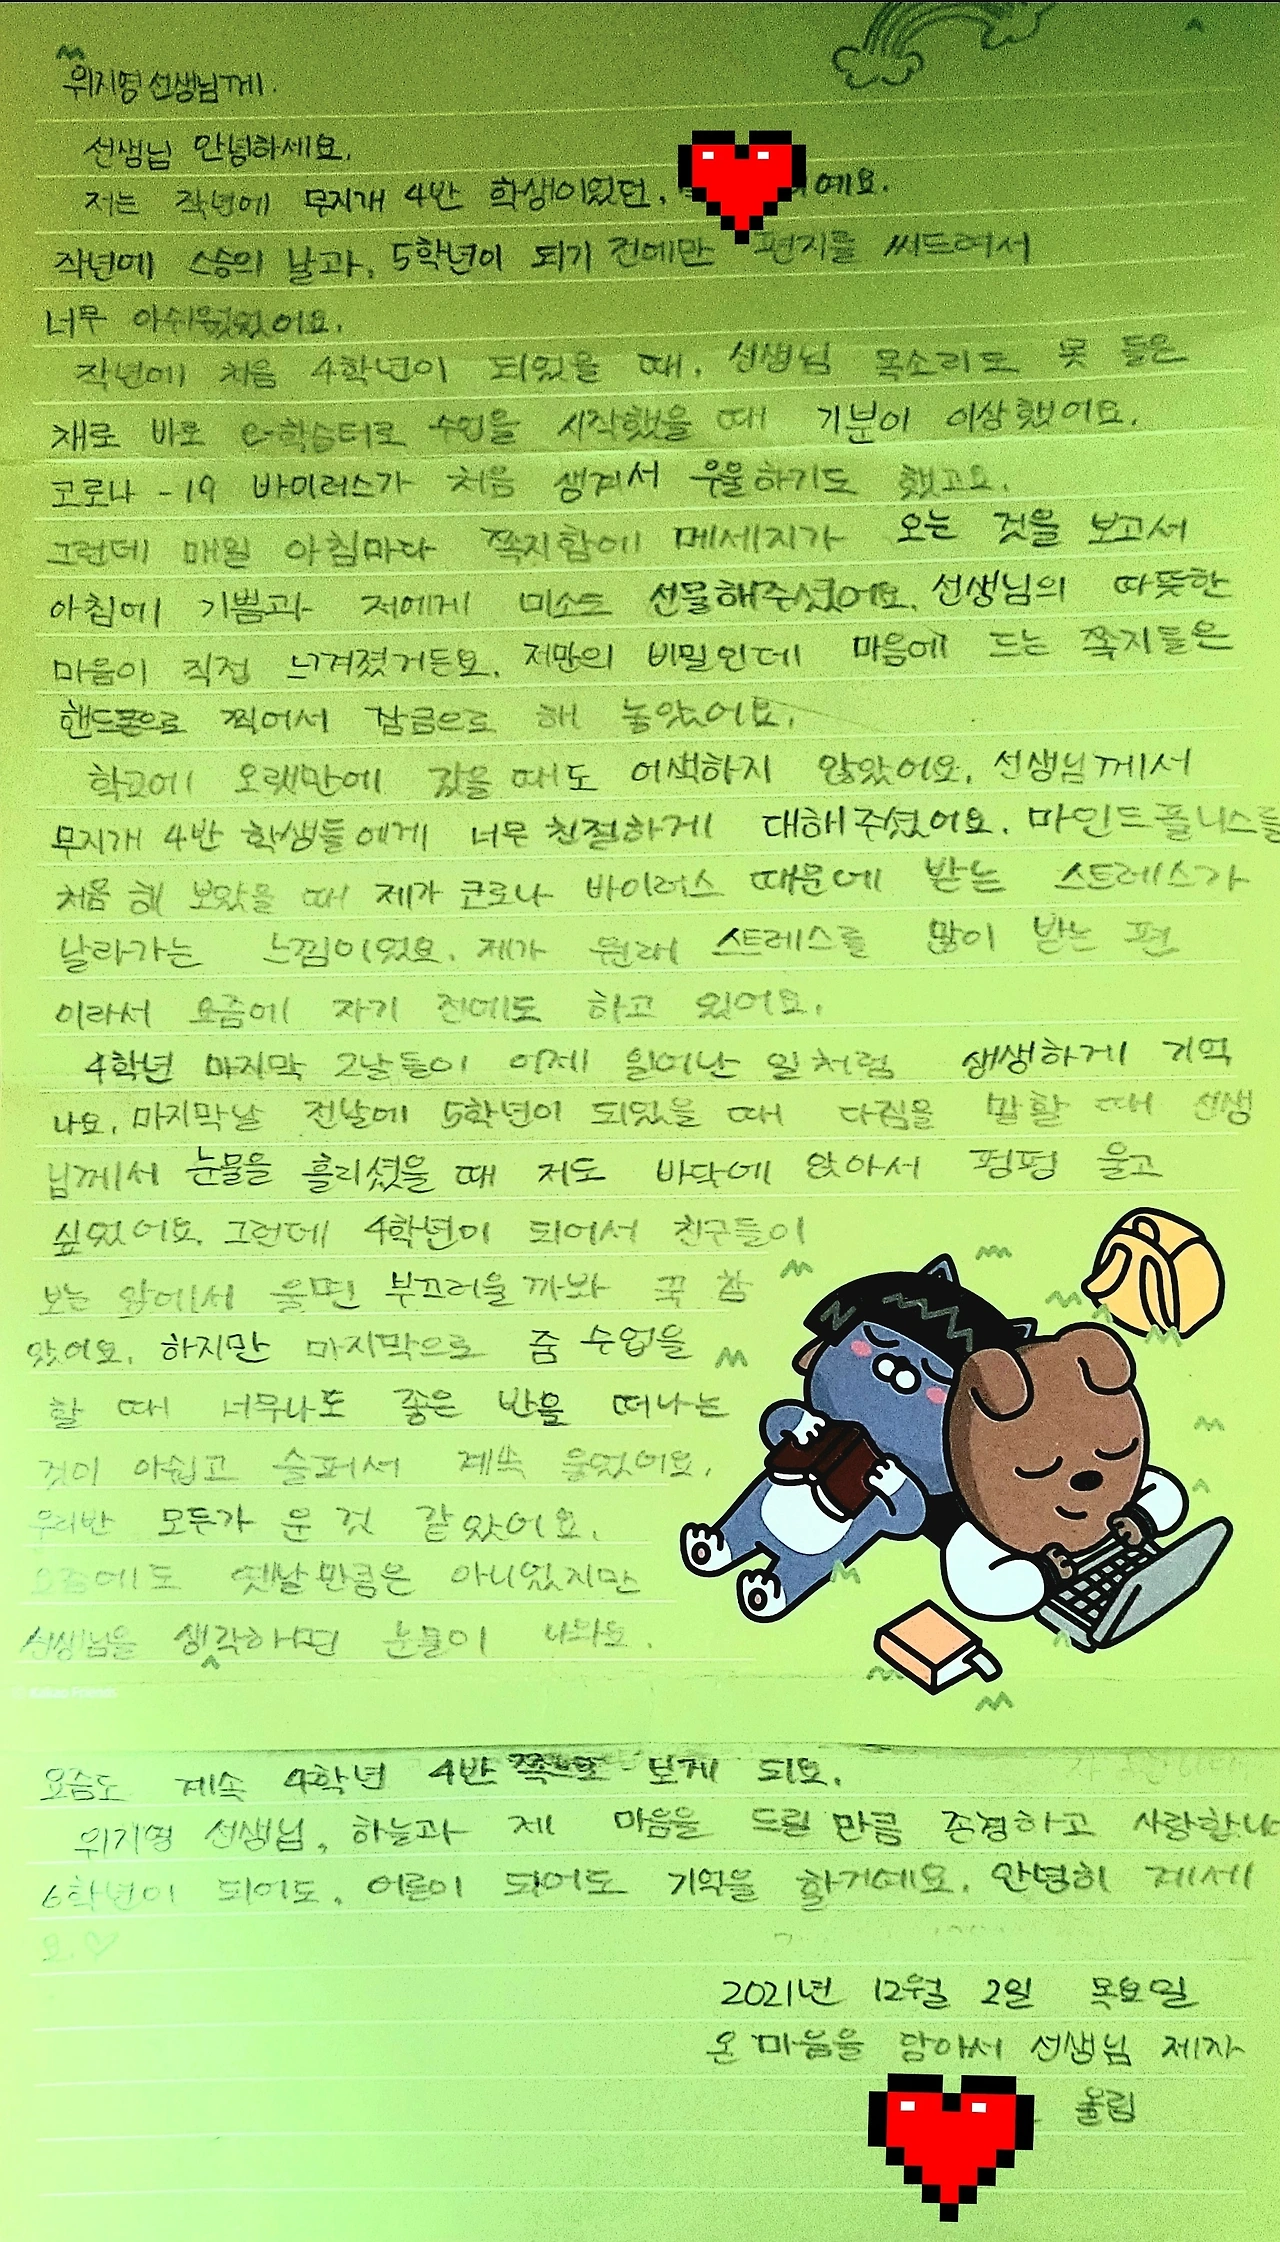 위지영 선생님께.
선생님 안녕하세요.
저는 작년에 무지개 4반 학생이었던, 예요.
작년에 스승의 날과, 5학년이 되기 전에만 편지를 써드려서
너무 아쉬웠었어요.
작년에 처음 4학년이 되었을 때, 선생님 목소리도 못 들은
채로 바로 e-학습터로 수업을 시작했을 때 기분이 이상했어요.
코로나-19 바이러스가 처음 생겨서 우울하기도 했고요.
그런데 매일 아침마다 쪽지함에 메세지가 오는 것을 보고서
아침에 기쁨과 저에게 미소도 선물해주셨어요. 선생님의 따뜻한
마음이 직접 느껴졌거든요. 저만의 비밀인데 마음에 드는 쪽지들은
핸드폰으로 찍어서 잠금으로 해 놓았어요.
학교에 오랫만에 갔을 때도 어색하지 않았어요. 선생님께서
무지개 4반 학생들에게 너무 친절하게 대해주셨어요. 마인드풀니스를
처음 해 보았을 때 제가 코로나 바이러스 때문에 받는 스트레스가
날라가는 느낌이었요. 제가 원래 스트레스를 많이 받는 편
이라서 요즘에 자기 전에도 하고 있어요.
4학년 마지막 2날들이 어제 일어난 일처럼 생생하게 기억
나요. 마지막날 전날에 5학년이 되었을 때 다짐을 말할 때 선생
님께서 눈물을 흘리셨을 때 저도 바닥에 앉아서 펑펑 울고
싶었어요. 그런데 4학년이 되어서 친구들이
보는 앞에서 울면 부끄러울까봐 꾹 참
았어요. 하지만 마지막으로 줌 수업을
할 때 너무나도 좋은 반을 떠나는
것이 아쉽고 슬퍼서 계속 울었어요.
우리반 모두가 운 것 같았어요.
요즘에도 옛날만큼은 아니었지만
선생님을 생각하면 눈물이 나와요.
요즘도 계속 4학년 4반 쪽으로 보게 되요.
위지영 선생님, 하늘과 제 마음을 드릴 만큼 존경하고 사랑합니다
6학년이 되어도, 어른이 되어도 기억을 할거예요. 안녕히 계세
요.♡
2021년 12월 2일 목요일
온 마음을 담아서 선생님 제자
올림